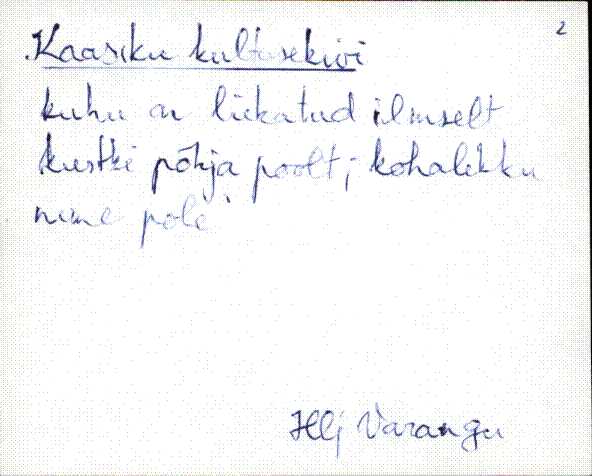 2
Kaasiku kultusekivi
kuhu on lükatud ilmselt
kustki põhja poolt; kohalikku
nime pole
Hlj Varangu